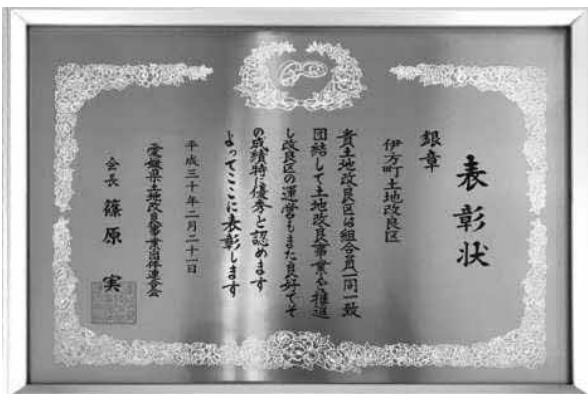 表彰状
銀章
伊方町土地改良区
貴土地改良区は組合員一同一致
団結して土地改良事業を推進
し改良区の運営もまた良好でそ
の成績特に優秀と認めます
よってここに表彰します
平成三十年二月二十一日
愛媛県土地改良事業団体連合会
会長 篠原 実